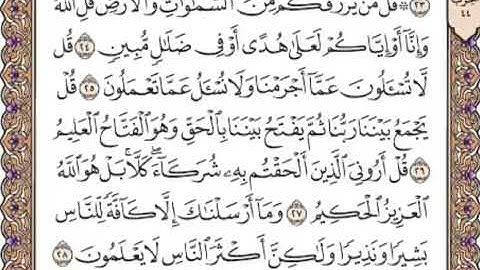 ۞ قُلْ مَن يَرْزُقُكُم مِّنَ ٱلسَّمَٰوَٰتِ وَٱلْأَرْضِ قُلِ ٱللَّهُ
وَإِنَّآ أَوْ إِيَّاكُمْ لَعَلَىٰ هُدًى أَوْ فِى ضَلَٰلٍ مُّبِينٍ ٢٤ قُل
لَّا تُسْـَٔلُونَ عَمَّآ أَجْرَمْنَا وَلَا نُسْـَٔلُ عَمَّا تَعْمَلُونَ ٢٥ قُلْ
يَجْمَعُ بَيْنَنَا رَبُّنَا ثُمَّ يَفْتَحُ بَيْنَنَا بِٱلْحَقِّ وَهُوَ ٱلْفَتَّاحُ ٱلْعَلِيمُ
٢٦ قُلْ أَرُونِىَ ٱلَّذِينَ أَلْحَقْتُم بِهِۦ شُرَكَآءَ ۖ كَلَّا ۚ بَلْ هُوَ ٱللَّهُ
ٱلْعَزِيزُ ٱلْحَكِيمُ ٢٧ وَمَآ أَرْسَلْنَٰكَ إِلَّا كَآفَّةً لِّلنَّاسِ
بَشِيرًا وَنَذِيرًا وَلَٰكِنَّ أَكْثَرَ ٱلنَّاسِ لَا يَعْلَمُونَ ٢٨